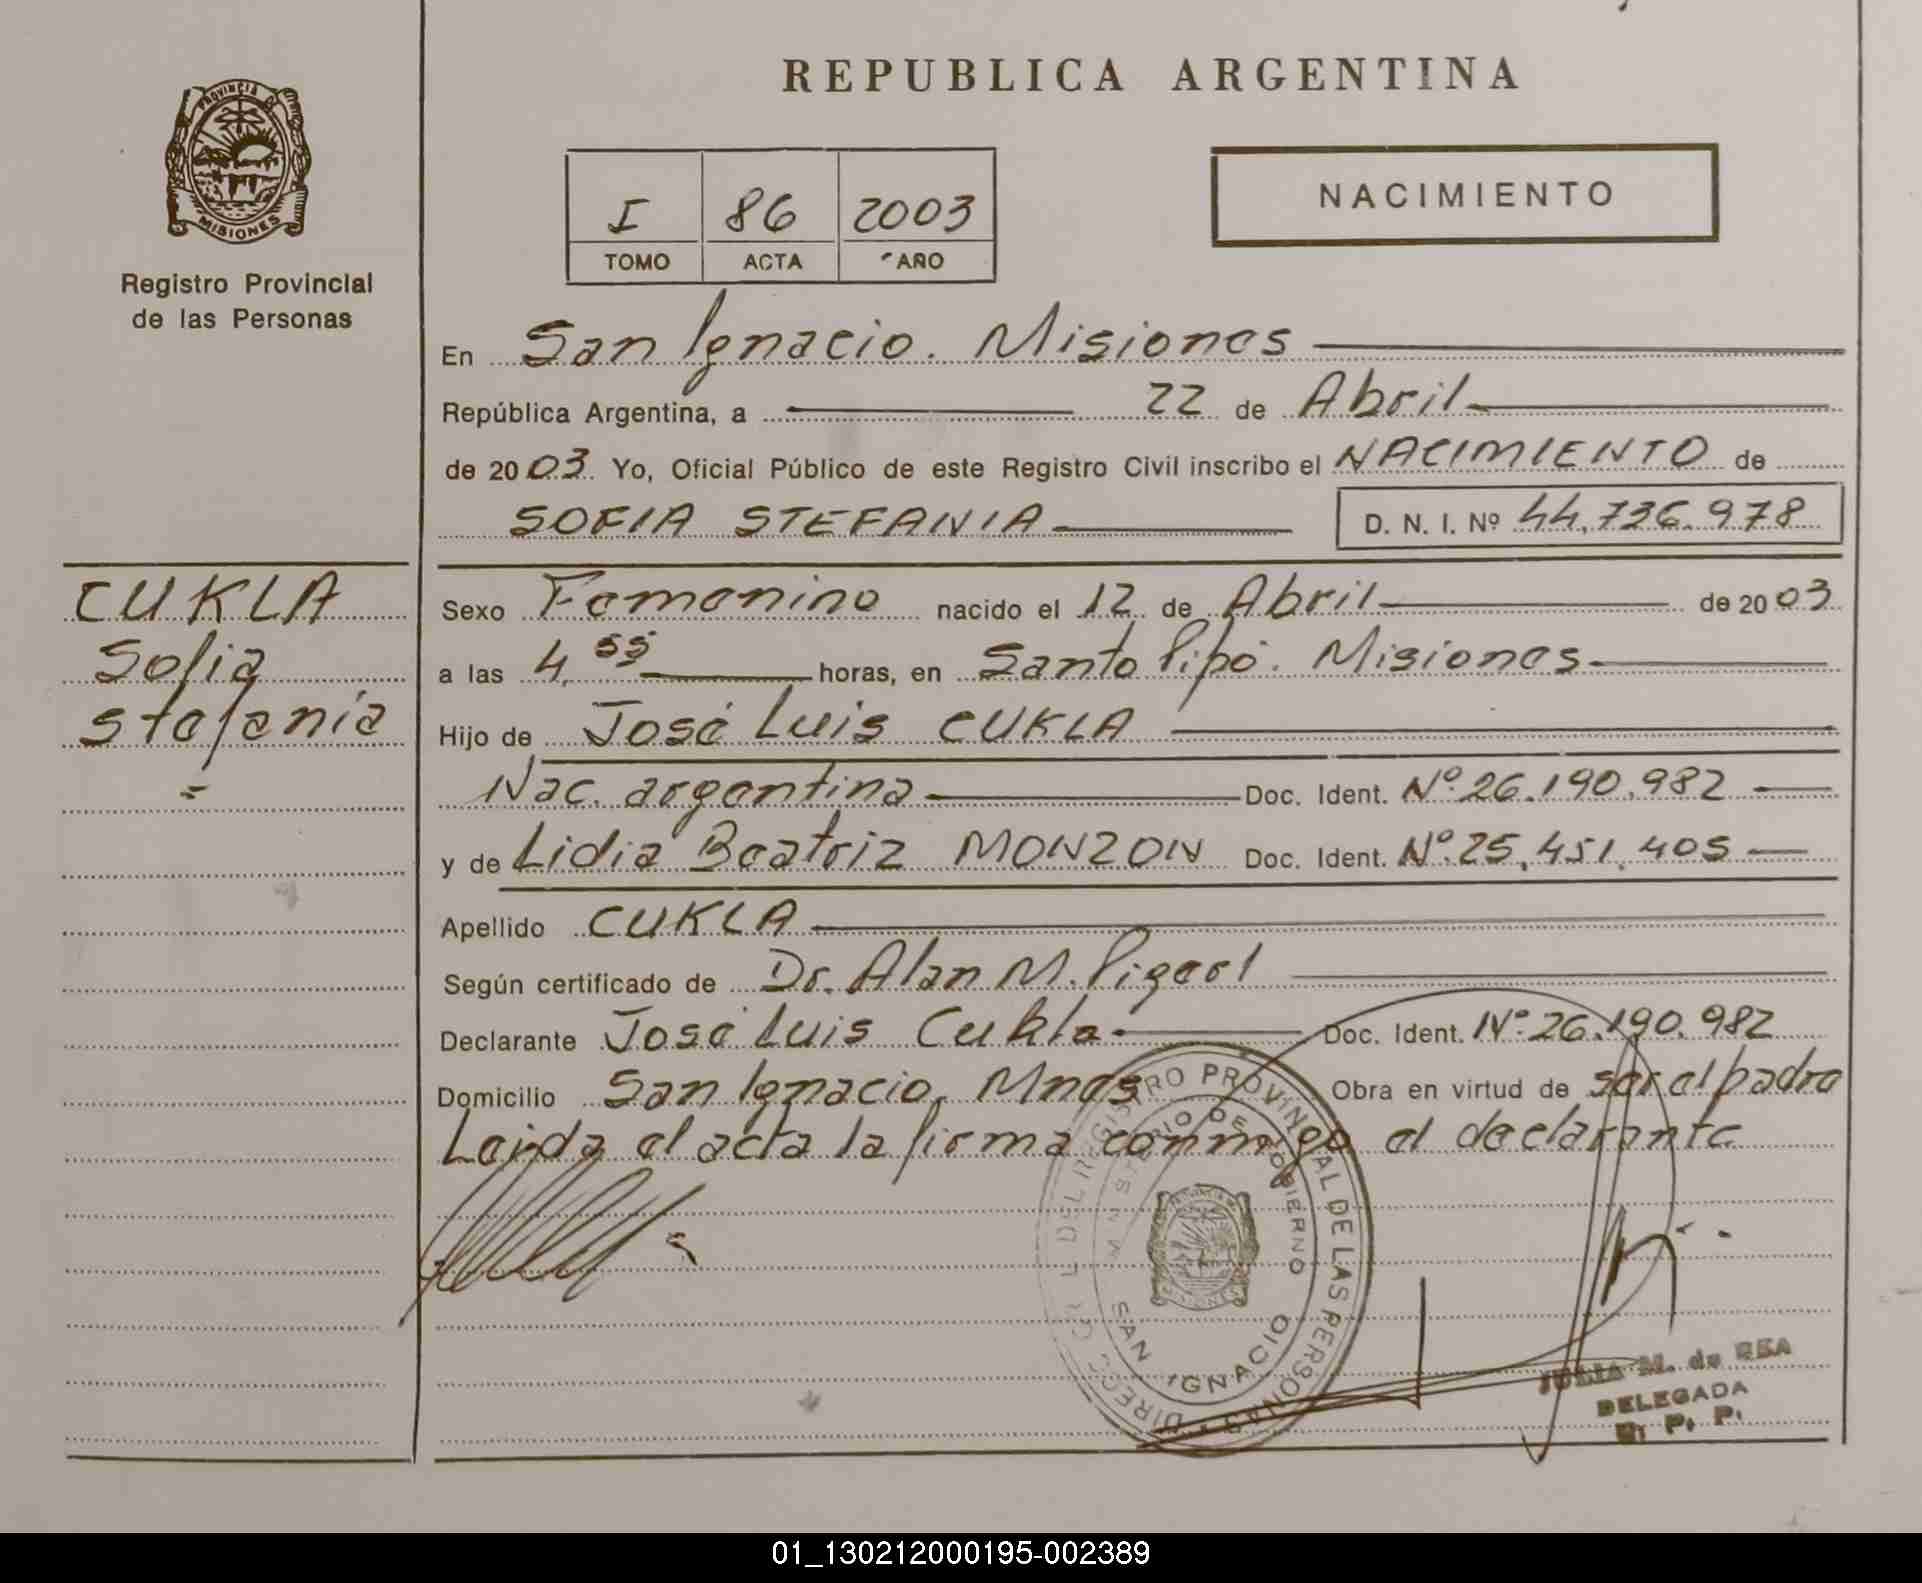 REPUBLICA ARGENTINA
PROVINCIA DE
MISIONES
Registro Provincial
de las Personas
I 86 2003
TOMO ACTA AÑO
NACIMIENTO
En San Ignacio. Misiones
República Argentina, a 22 de Abril
de 2003. Yo, Oficial Público de este Registro Civil inscribo el NACIMIENTO de
SOFIA STEFANIA D. N. I. Nº 44.736.978
CUKLA
Sofia
Stefania
Sexo Femenino nacido el 12 de Abril de 2003
a las 4,55 horas, en Santo Pipó. Misiones
Hijo de José Luis CUKLA
Nac. argentina Doc. Ident. Nº 26.190.982
y de Lidia Beatriz MONZON Doc. Ident. Nº 25.451.405
Apellido CUKLA
Según certificado de Dr. Alan M.
Declarante José Luis Cukla Doc. Ident. Nº 26.190.982
Domicilio San Ignacio, Mnes Obra en virtud de ser el padre
Leida el acta la firma conmigo el declarante
REGISTRO PROVINCIAL DE LAS PERSONAS
MINISTERIO DE GOBIERNO
SAN IGNACIO
MISIONES
JULIA M. de REA
DELEGADA
R. P. P.
01_130212000195-002389